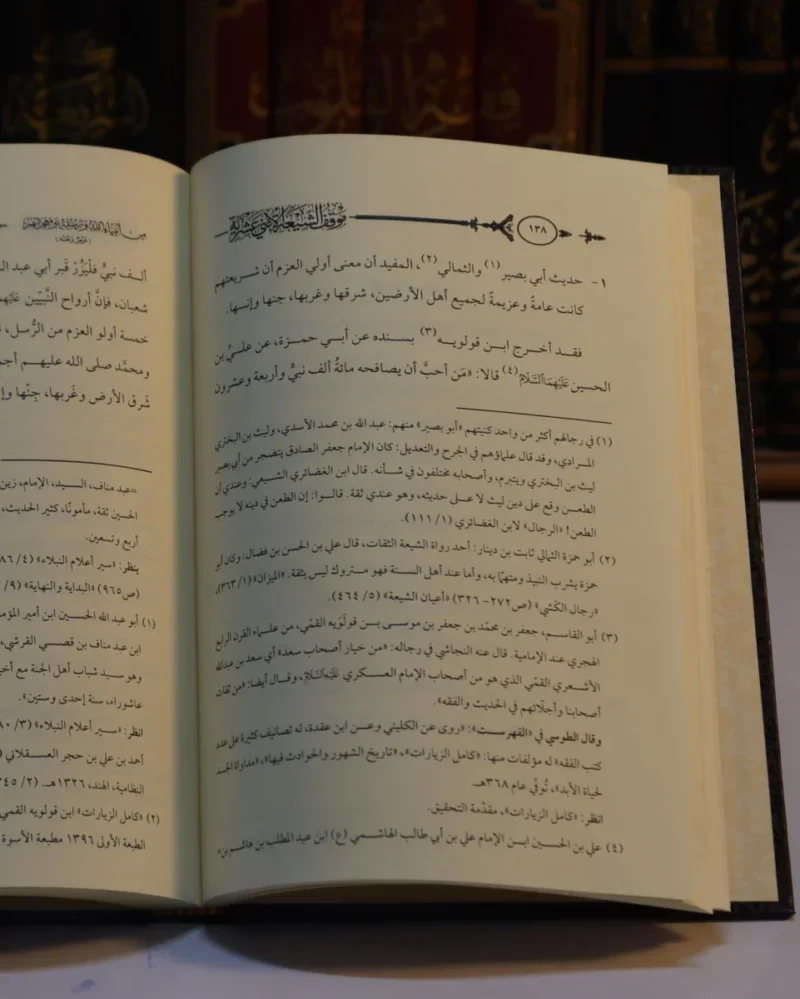 ١٣٨
موقف الشيعة الاثني عشرية
١- حديث أبي بصير(١) والثمالي(٢)، المفيد أن معنى أولي العزم أن شريعتهم
كانت عامةً وعزيمةً لجميع أهل الأرضين، شرقها وغربها، جنها وإنسها.
فقد أخرج ابن قولويه(٣) بسنده عن أبي حمزة، عن عليِّ بن
الحسين عَلَيْهِمَا السَّلَامُ(٤) قالا: «مَن أحبَّ أن يصافحه مائةُ ألف نبيٍّ وأربعة وعشرون
(١) في رجالهم أكثر من واحد كنيتهم «أبو بصير» منهم: عبد الله بن محمد الأسدي، وليث بن البختري
المرادي، وقد قال علماؤهم في الجرح والتعديل: كان الإمام جعفر الصادق يتضجر من أبي بصير
ليث بن البختري ويتبرم، وأصحابه مختلفون في شأنه. قال ابن الغضائري الشيعي: وعندي أن
الطعن وقع على دين ليث لا على حديثه، وهو عندي ثقة. قالوا: إن الطعن في دينه لا يوجب
الطعن! «الرجال» لابن الغضائري (١/ ١١١).
(٢) أبو حمزة الثمالي ثابت بن دينار: أحد رواة الشيعة الثقات، قال علي بن الحسن بن فضال: وكان أبو
حمزة يشرب النبيذ ومتهمًا به، وأما عند أهل السنة فهو متروك ليس بثقة. «الميزان» (١/ ٣٦٣)،
«رجال الكشي» (ص٢٧٢- ٣٢٦) «أعيان الشيعة» (٥/ ٤٦٤).
(٣) أبو القاسم، جعفر بن محمّد بن جعفر بن موسى بن قولَوَيه القمّي، من علماء القرن الرابع
الهجري عند الإمامية. قال عنه النجاشي في رجاله: «من خيار أصحاب سعد» أي سعد بن عبدالله
الأشعري القمّي الذي هو من أصحاب الإمام العسكري عَلَيْهِ السَّلَامُ، وقال أيضا: «من ثقات
أصحابنا وأجلّائهم في الحديث والفقه».
وقال الطوسي في «الفهرست»: «روى عن الكليني وعن ابن عقدة، له تصانيف كثيرة على عدد
كتب الفقه» له مؤلفات منها: «كامل الزيارات»، «تاريخ الشهور والحوادث فيها»، «مداواة الجسد
لحياة الأبد»، تُوفّي عام ٣٦٨هـ.
انظر: «كامل الزيارات»، مقدّمة التحقيق.
(٤) علي بن الحسين ابن الإمام علي بن أبي طالب الهاشمي (ع) ابن عبد المطلب بن هاشم بن=
من أنبياء الله
ألف نبيٍّ فلْيَزُرْ قَبر أبي عبد
شعبان، فإنَّ أرواح النَّبيّين
خمسة أولو العزم من الرُّسل،
ومحمَّد صلى الله عليهم
شَرق الأرض وغَربها، جِنِّها
=عبد مناف، السيد، الإمام، زين
الحسين ثقة، مأمونًا، كثير الحديث،
أربع وتسعين.
ينظر: «سير أعلام النبلاء» (٤/
(ص٩٦٥) «البداية والنهاية» (٩/
(١) أبو عبد الله الحسين ابن أمير
ابن عبد مناف بن قصي القرشي،
وهو سيد شباب أهل الجنة مع
عاشوراء، سنة إحدى وستين».
انظر: «سير أعلام النبلاء» (٣/
أحمد بن علي بن حجر العسقلاني
النظامية، الهند، ١٣٢٦هـ. (٢/
(٢) «كامل الزيارات» ابن قولويه القمي
الطبعة الأولى ١٣٩٦ مطبعة الأسوة